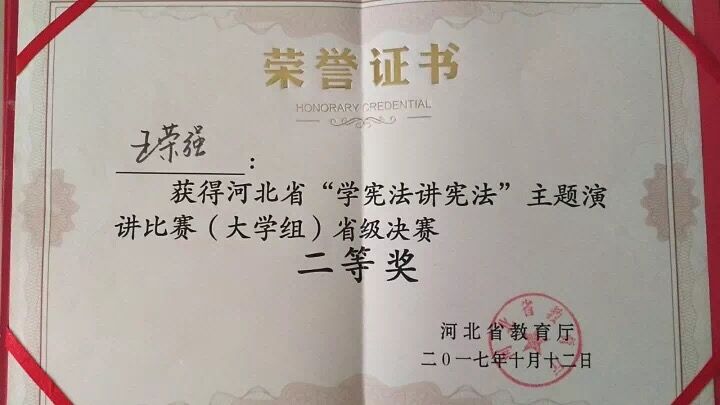 荣誉证书
HONORARY CREDENTIAL
王荣强：
获得河北省“学宪法讲宪法”主题演
讲比赛（大学组）省级决赛
二等奖
河北省教育厅
二０一七年十月十二日
河北省教育厅